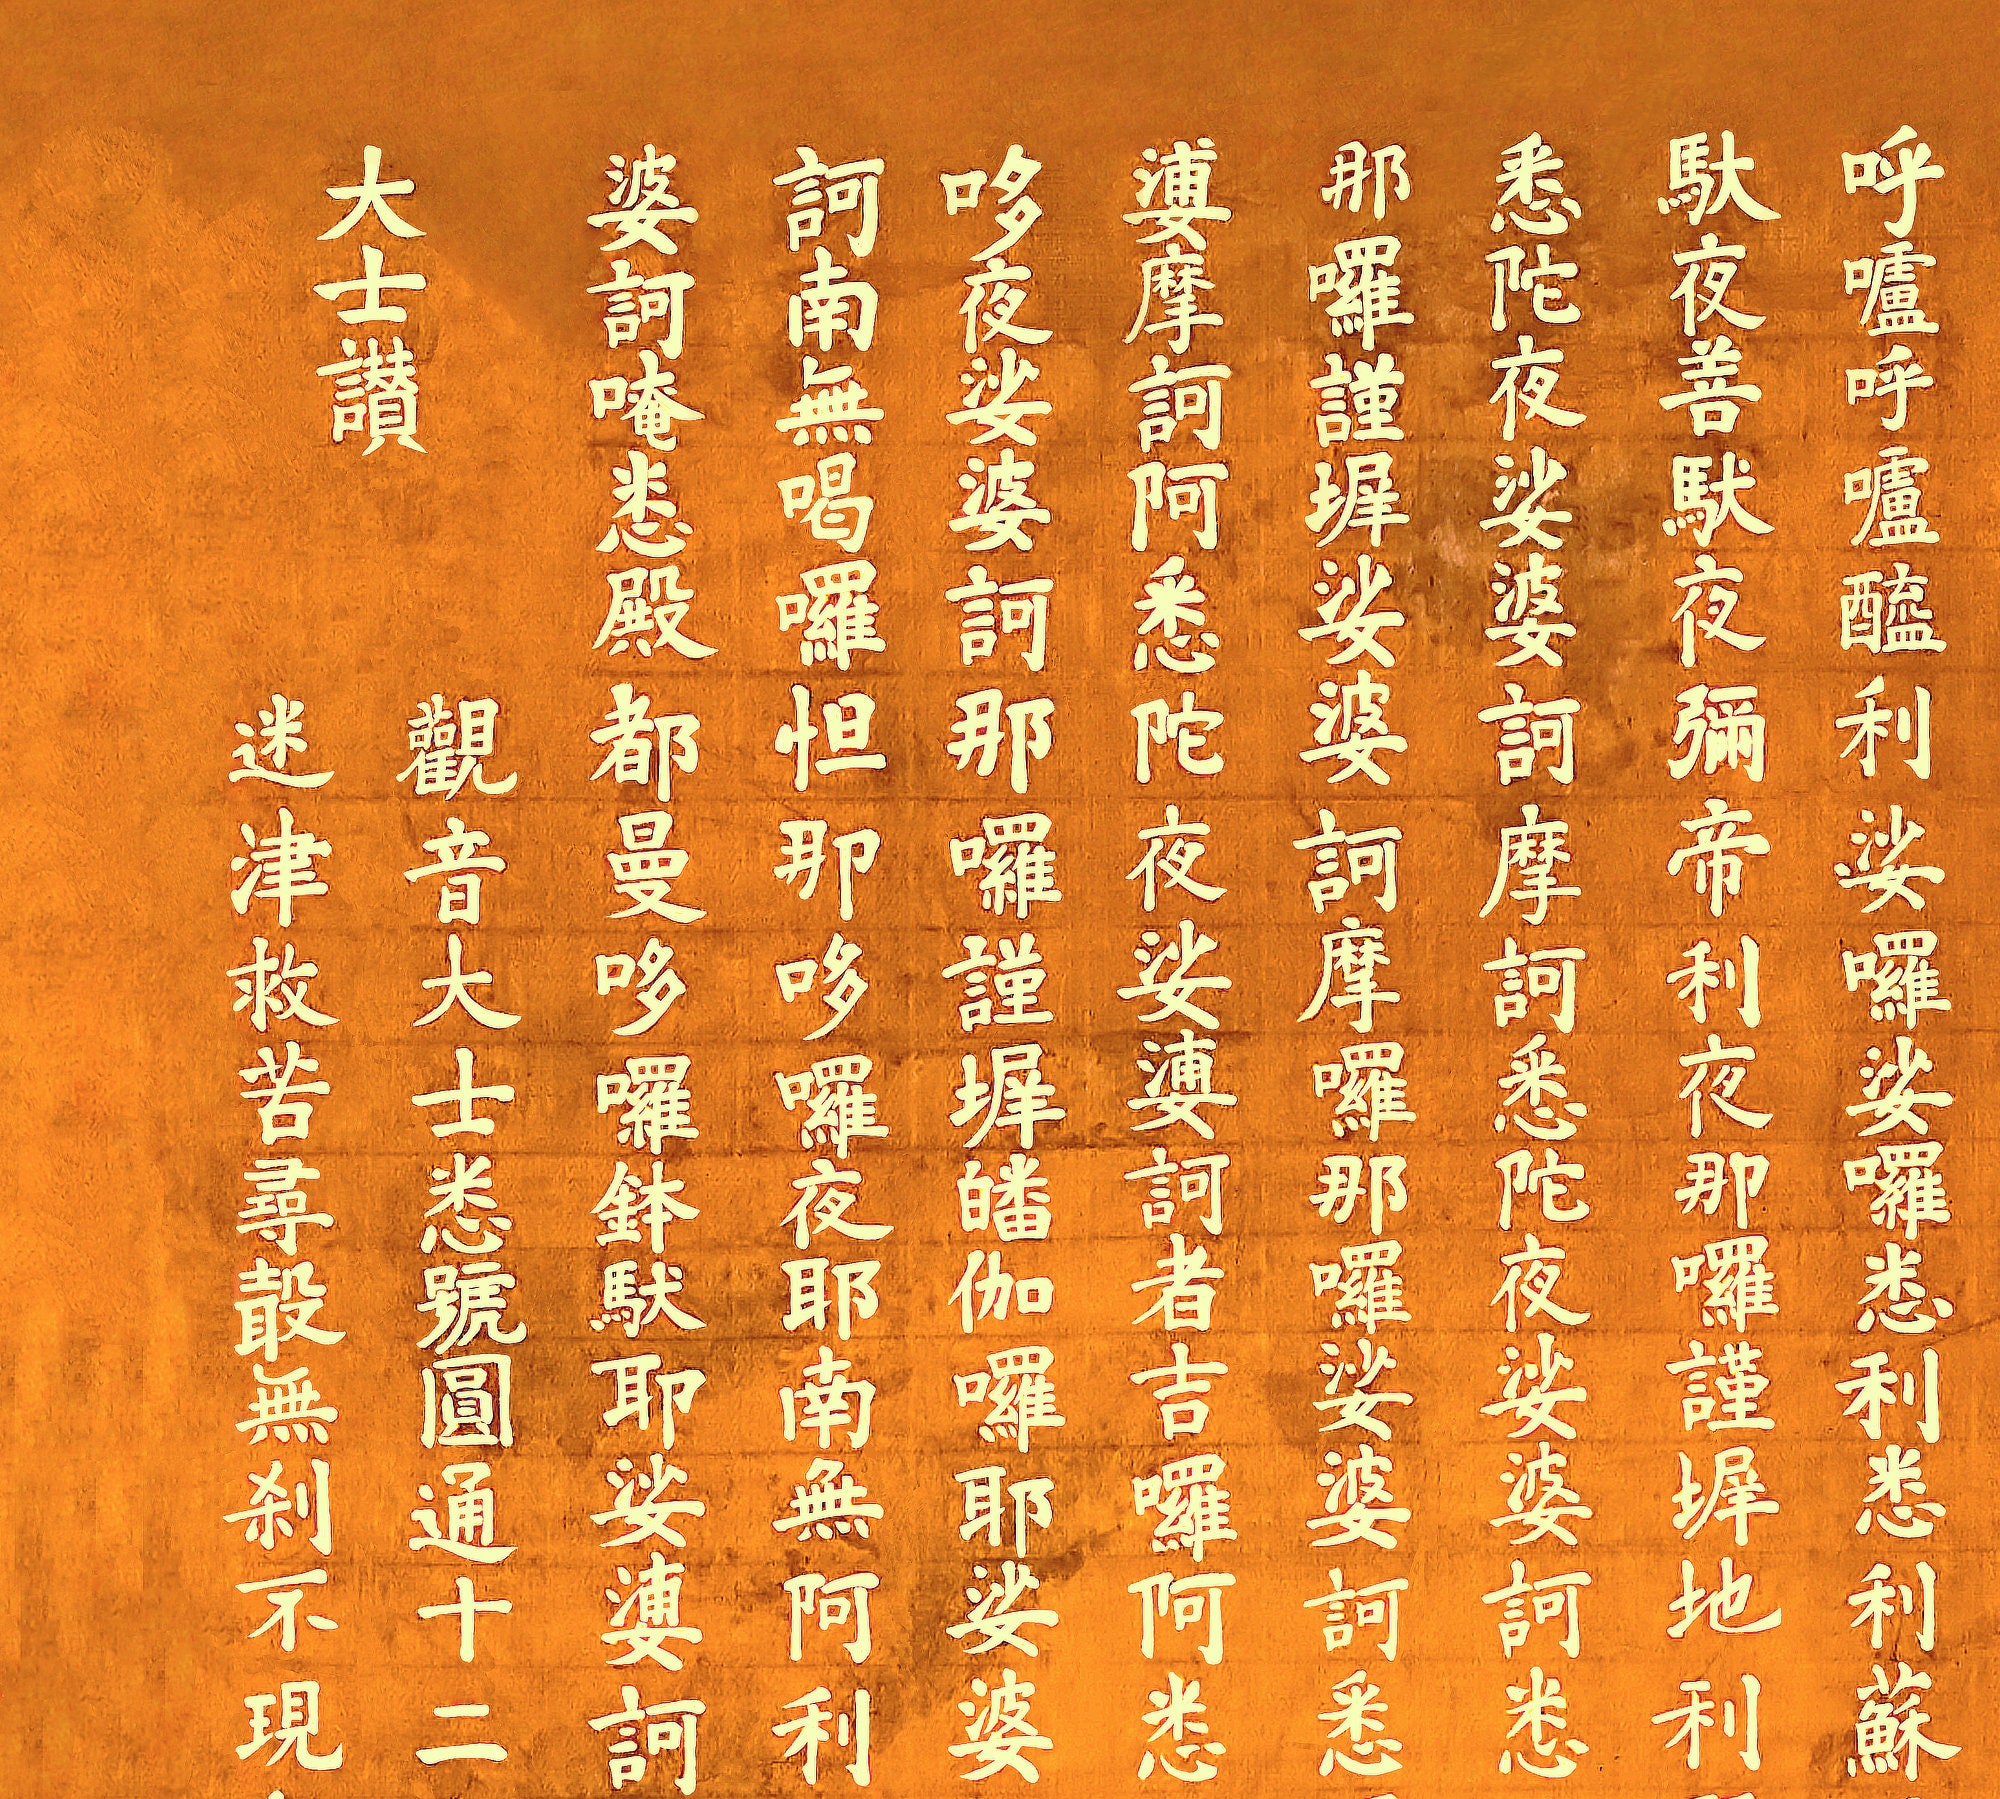 呼嚧呼嚧醯利娑囉娑囉悉利悉利蘇
馱夜菩馱夜彌帝利夜那囉謹墀地利
悉陀夜娑婆訶摩訶悉陀夜娑婆訶悉
那囉謹墀娑婆訶摩囉那囉娑婆訶悉
婆摩訶阿悉陀夜娑婆訶者吉囉阿悉
哆夜娑婆訶那囉謹墀皤伽囉耶娑婆
訶南無喝囉怛那哆囉夜耶南無阿利
婆訶唵悉殿都曼哆囉鉢馱耶娑婆訶
大士讚
觀音大士悉號圓通十二
迷津救苦尋聲無刹不現